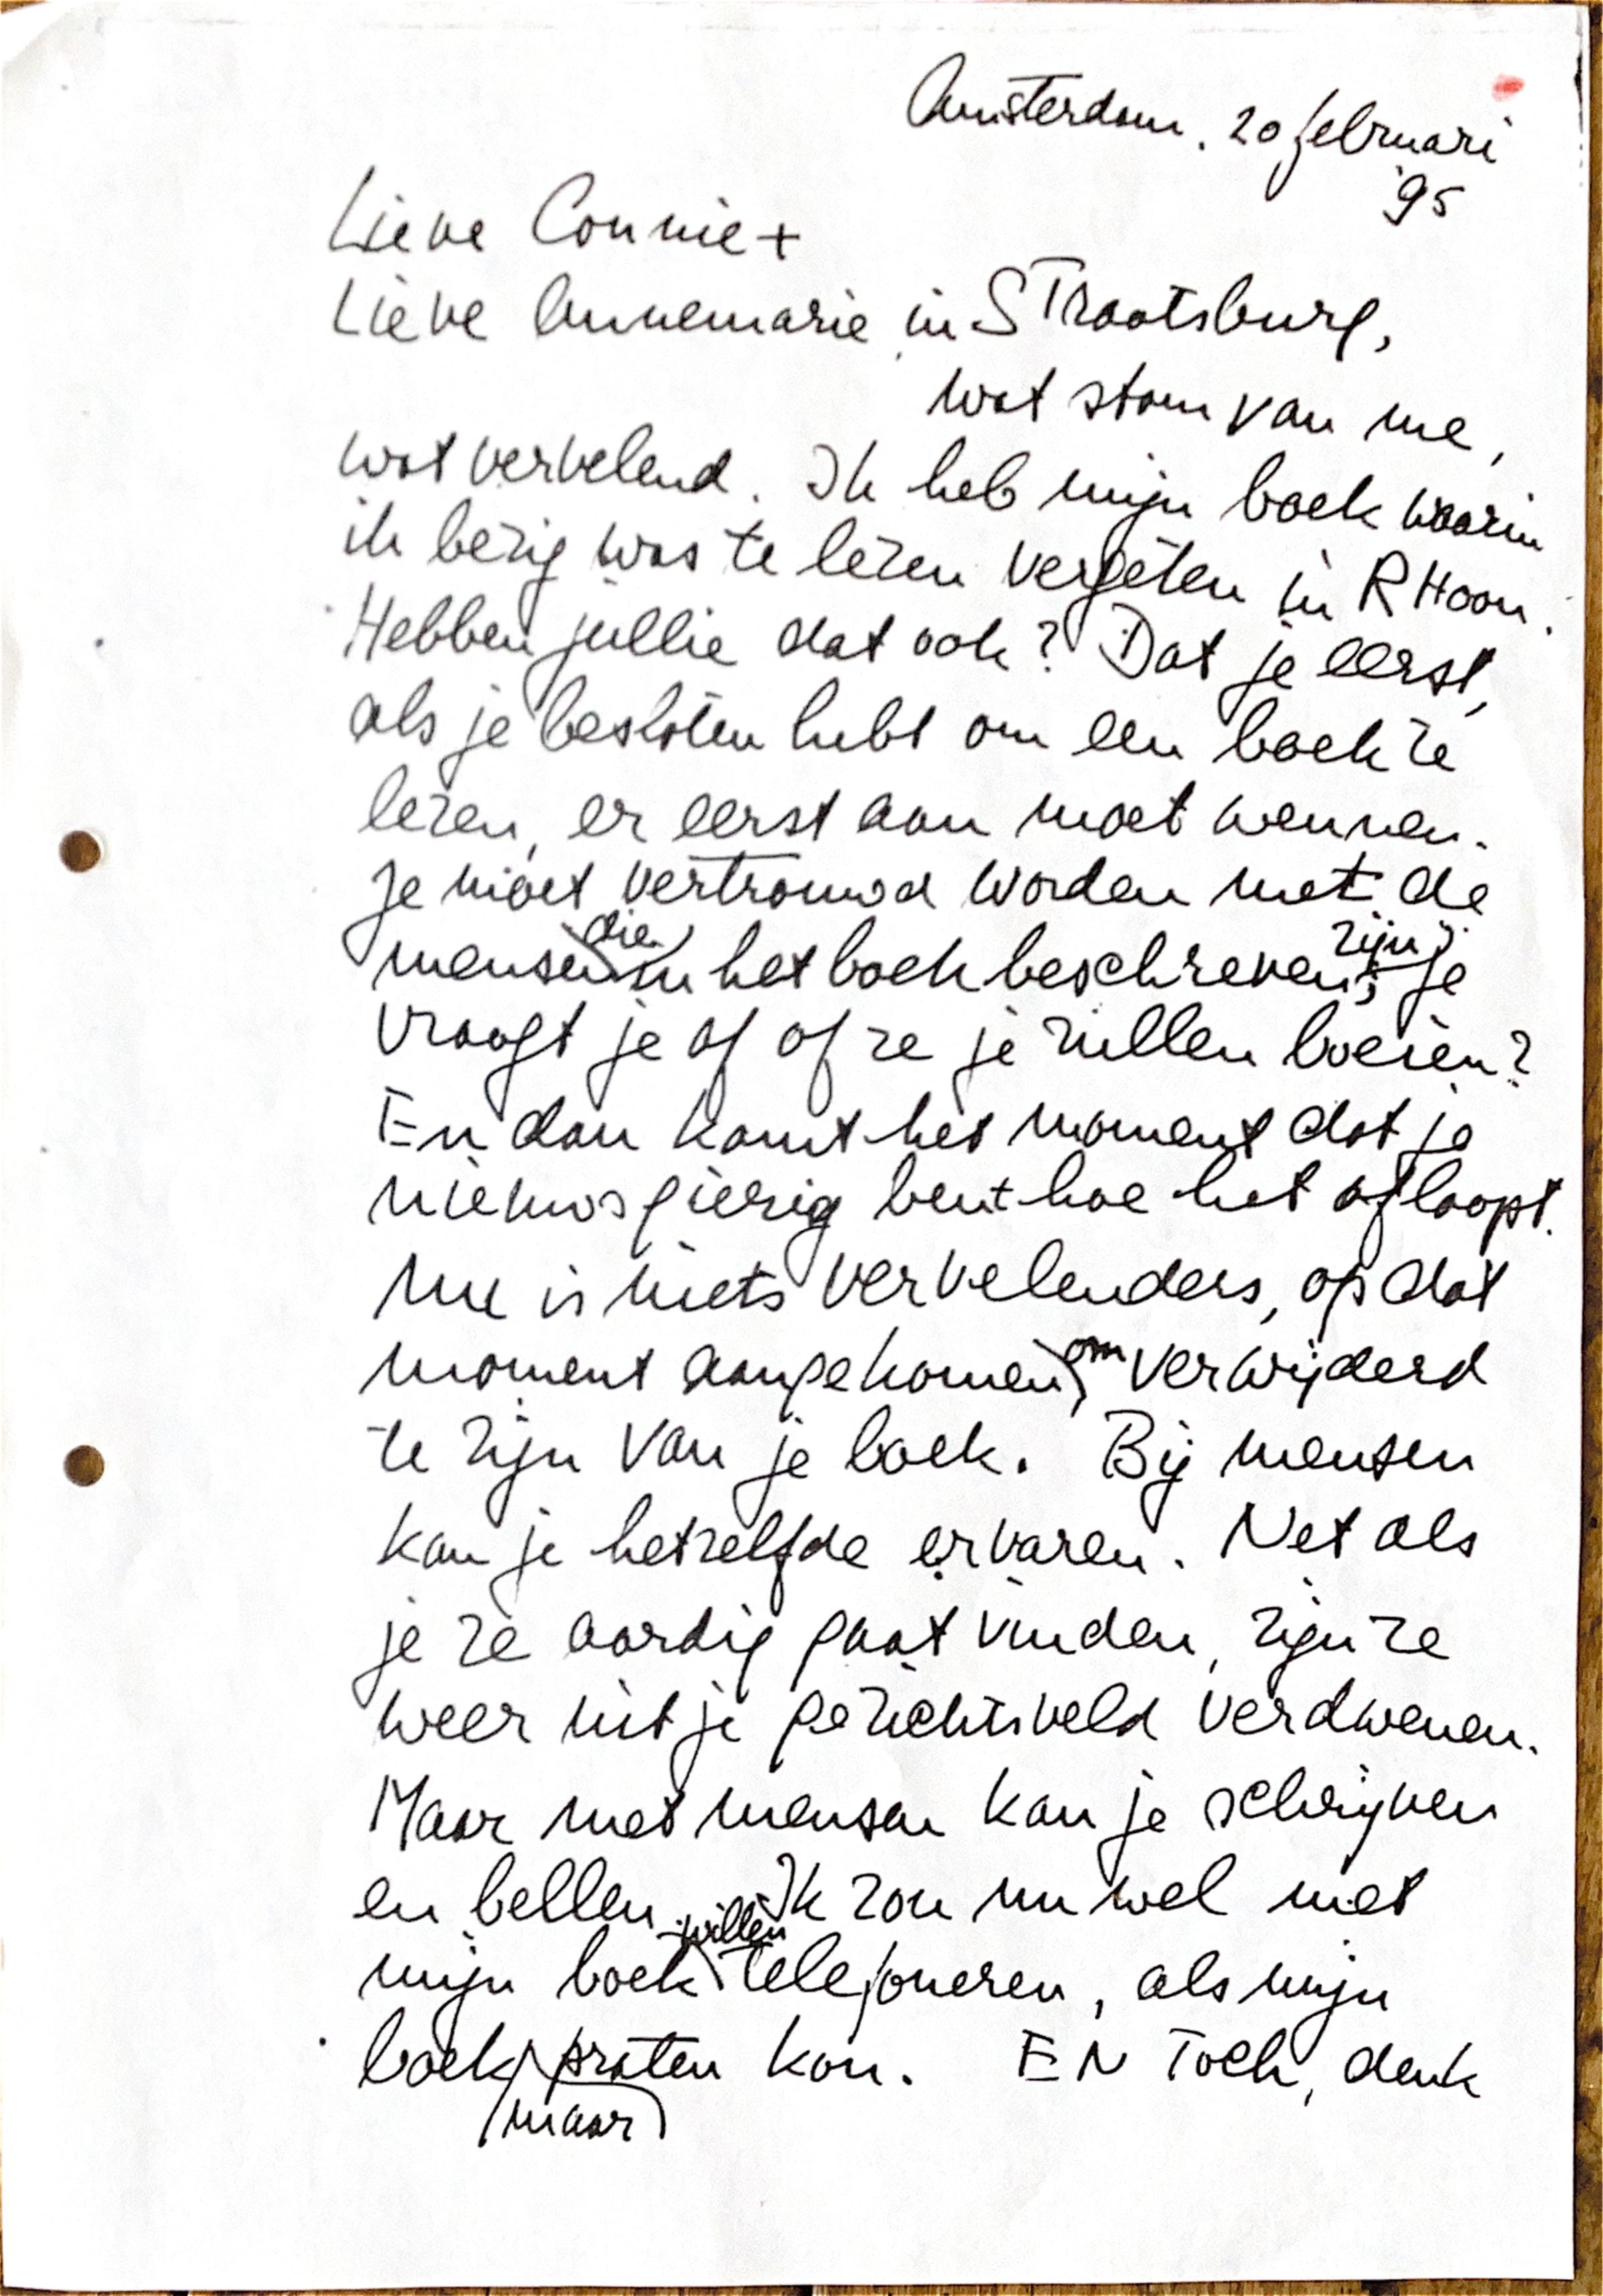 Amsterdam, 20 februari
'95
Lieve Connie +
Lieve Annemarie in STraatsburg,
wat stom van me,
wat vervelend. Ik heb mijn boek waarin
ik bezig was te lezen vergeten in RHoon.
Hebben jullie dat ook? Dat je eerst,
als je besloten hebt om een boek te
lezen, er eerst aan moet wennen.
Je moet vertrouwd worden met de
mensen die in het boek beschreven zijn; je
vraagt je af of ze je zullen boeien?
En dan komt het moment dat je
nieuwsgierig bent hoe het afloopt.
Nu is niets vervelenders, op dat
moment aangekomen, om verwijderd
te zijn van je boek. Bij mensen
kan je hetzelfde ervaren. Net als
je ze aardig gaat vinden, zijn ze
weer uit je gezichtsveld verdwenen.
Maar met mensen kan je schrijven
en bellen. Ik zou nu wel met
mijn boek willen telefoneren, als mijn
boek maar praten kon. EN Toch, denk